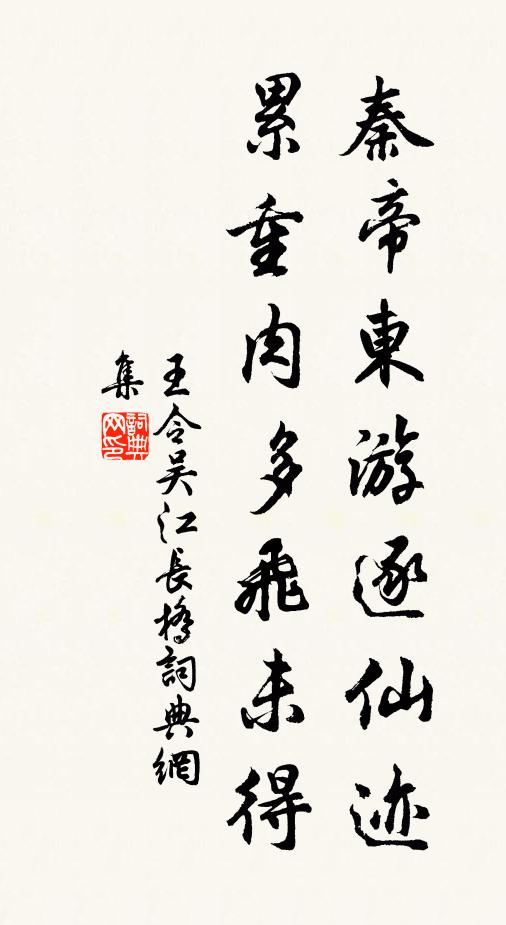 秦帝東游逐仙迹
累重肉多飛未得
王令吴江長橋詞典網
集
詞典网印